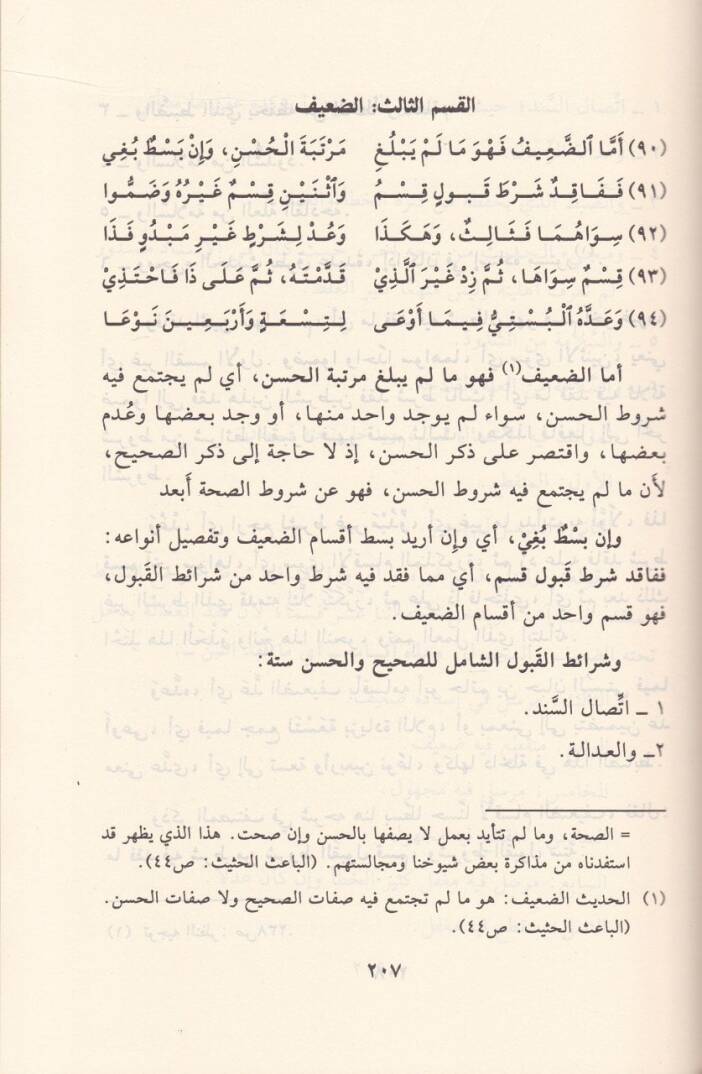 القسم الثالث: الضعيف
(٩٠) أَمَّا ٱلضَّعِيفُ فَهْوَ مَا لَمْ يَبْلُغِ مَرْتَبَةَ الْحُسْنِ، وَإِنْ بَسْطٌ بُغِي
(٩١) فَفَاقِدٌ شَرْطَ قَبُولٍ قِسْمُ وَٱثْنَيْنِ قِسْمٌ غَيْرُهُ وَضَمُّوا
(٩٢) سِوَاهُمَا فَثَالِثٌ، وَهَكَذَا وَعُدْ لِشَرْطٍ غَيْرِ مَبْدُوٍ فَذَا
(٩٣) قِسْمٌ سِوَاهَا، ثُمَّ زِدْ غَيْرَ الَّذِيْ قَدَّمْتَهُ، ثُمَّ عَلَى ذَا فَاحْتَذِيْ
(٩٤) وَعَدَّهُ الْبُسْتِيُّ فِيمَا أَوْعَى لِتِسْعَةٍ وَأَرْبَعِينَ نَوْعَا
أما الضعيف(١) فهو ما لم يبلغ مرتبة الحسن، أي لم يجتمع فيه
شروط الحسن، سواء لم يوجد واحد منها، أو وجد بعضها وعُدم
بعضها، واقتصر على ذكر الحسن، إذ لا حاجة إلى ذكر الصحيح،
لأن ما لم يجتمع فيه شروط الحسن، فهو عن شروط الصحة أبعد
وإن بسْطٌ بُغِيْ، أي وإن أريد بسط أقسام الضعيف وتفصيل أنواعه:
ففاقد شرط قَبول قسم، أي مما فقد فيه شرط واحد من شرائط القَبول،
فهو قسم واحد من أقسام الضعيف.
وشرائط القَبول الشامل للصحيح والحسن ستة:
١ ـ اتِّصال السَّند.
٢ـ والعدالة.
= الصحة، وما لم تتأيد بعمل لا يصفها بالحسن وإن صحت. هذا الذي يظهر قد
استفدناه من مذاكرة بعض شيوخنا ومجالستهم. (الباعث الحثيث: ص٤٤).
(١) الحديث الضعيف: هو ما لم تجتمع فيه صفات الصحيح ولا صفات الحسن.
(الباعث الحثيث: ص٤٤).
٢٠٧